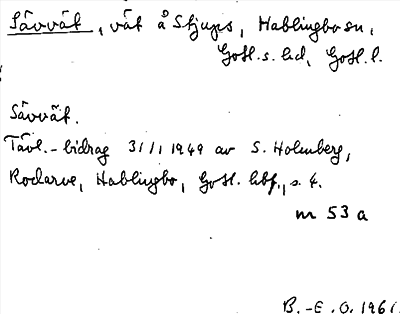 Sävvät, vät å Stjups, Hablingbo sn,
Gotl. s. hd, Gotl. l.
Sävvät.
Tävl.-bidrag 31/1 1949 av S. Holmberg,
Rodarve, Hablingbo, Gotl. hbf., s. 4.
m 53 a
B.-E. O. 1961